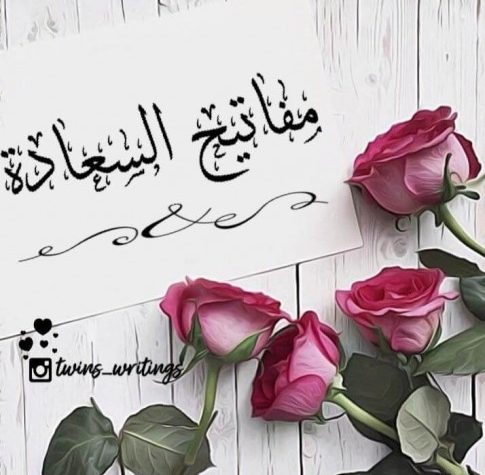 مفاتيح السعادة
twins_writings